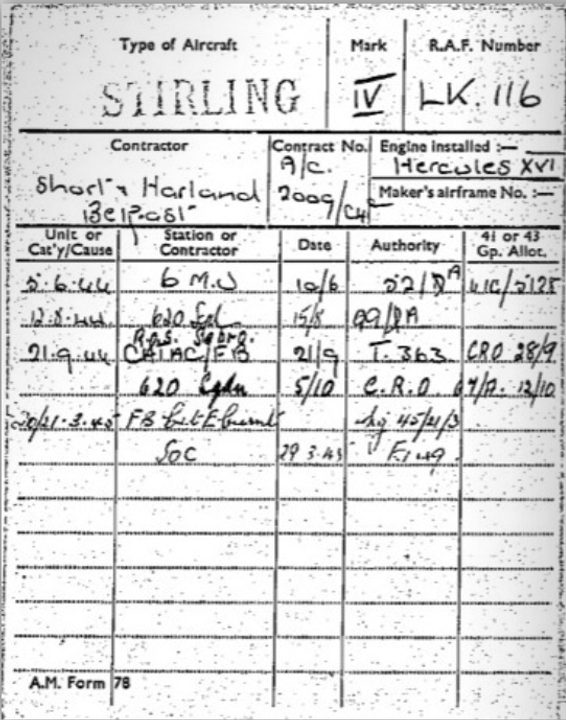 Type of Aircraft Mark R.A.F. Number
STIRLING IV LK. 116
Contractor Contract No. Engine installed :—
A/c. Hercules XVI
Short & Harland 2009/C4c Maker's airframe No. :—
Belfast
Unit or Cat'y/Cause Station or Contractor Date Authority 41 or 43 Gp. Allot.
5.6.44 6 M.U 10/6 52/ A 41G/5128
12.8.44 620 Sqd 15/8 A
Rps. Sqdrg.
21.9.44 CAT AC/FB 21/9 T.363 CRO 28/9
620 Sqdn 5/10 C.R.O 12/10
20/21.3.45 FB Cat E burnt 45/21/3
SOC 29 3.45
A.M. Form 78